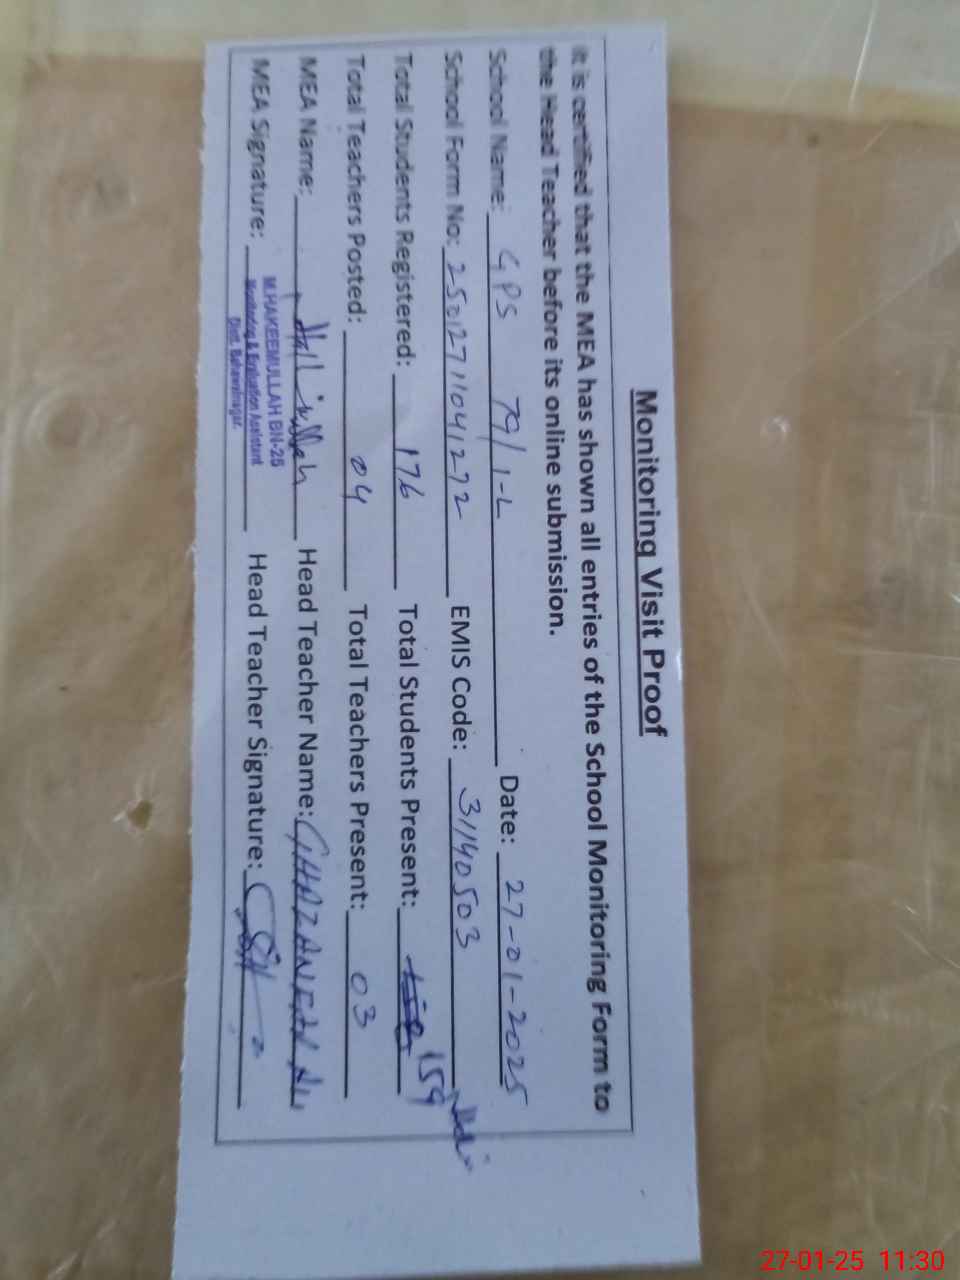 Monitoring Visit Proof
It is certified that the MEA has shown all entries of the School Monitoring Form to
the Head Teacher before its online submission.
School Name: GPS 79/1-L Date: 27-01-2025
School Form No: 25012711041272 EMIS Code: 31140503
Total Students Registered: 176 Total Students Present: 159
Total Teachers Posted: 04 Total Teachers Present: 03
MEA Name: Head Teacher Name: GHAZANFAR ALI
MEA Signature: Head Teacher Signature:
M.HAKEEMULLAH BN-25
Monitoring & Evaluation Assistant
Distt. Bahawalnagar.
27-01-25 11:30